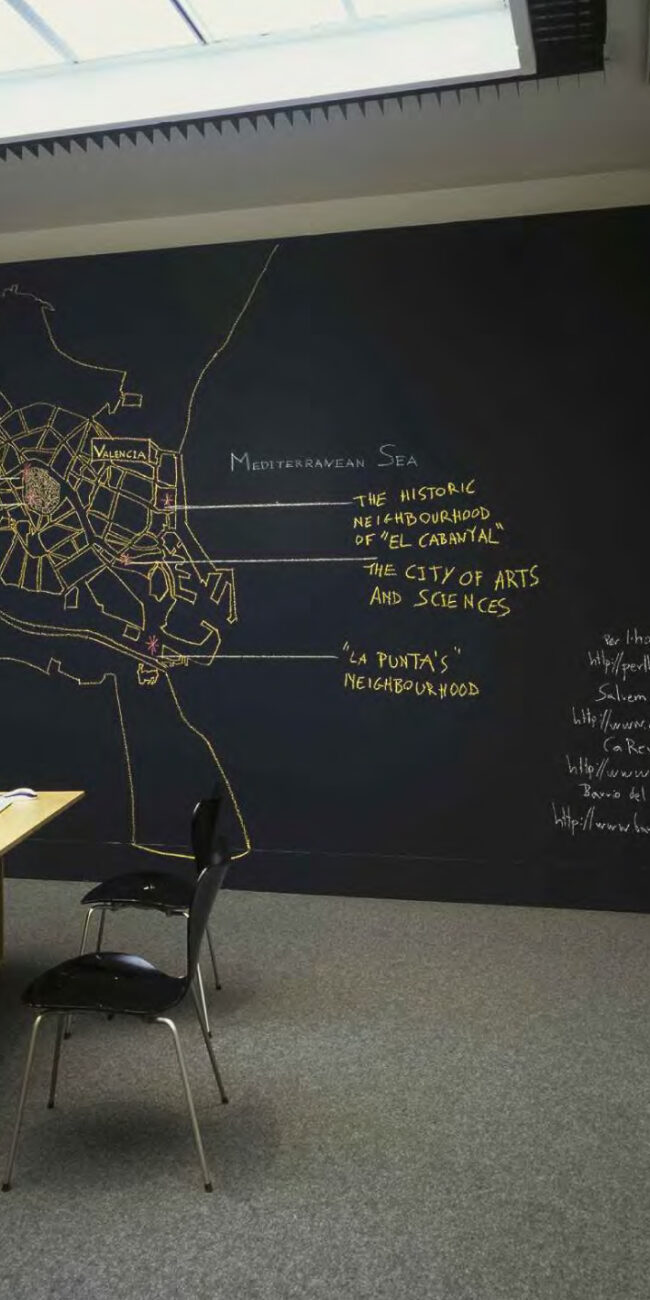 VALENCIA
MEDITERRANEAN SEA
THE HISTORIC
NEIGHBOURHOOD
OF "EL CABANYAL"
THE CITY OF ARTS
AND SCIENCES
"LA PUNTA'S"
NEIGHBOURHOOD
Per
http://
Salvem
http://www.
http://www
Barrio del
http://www.